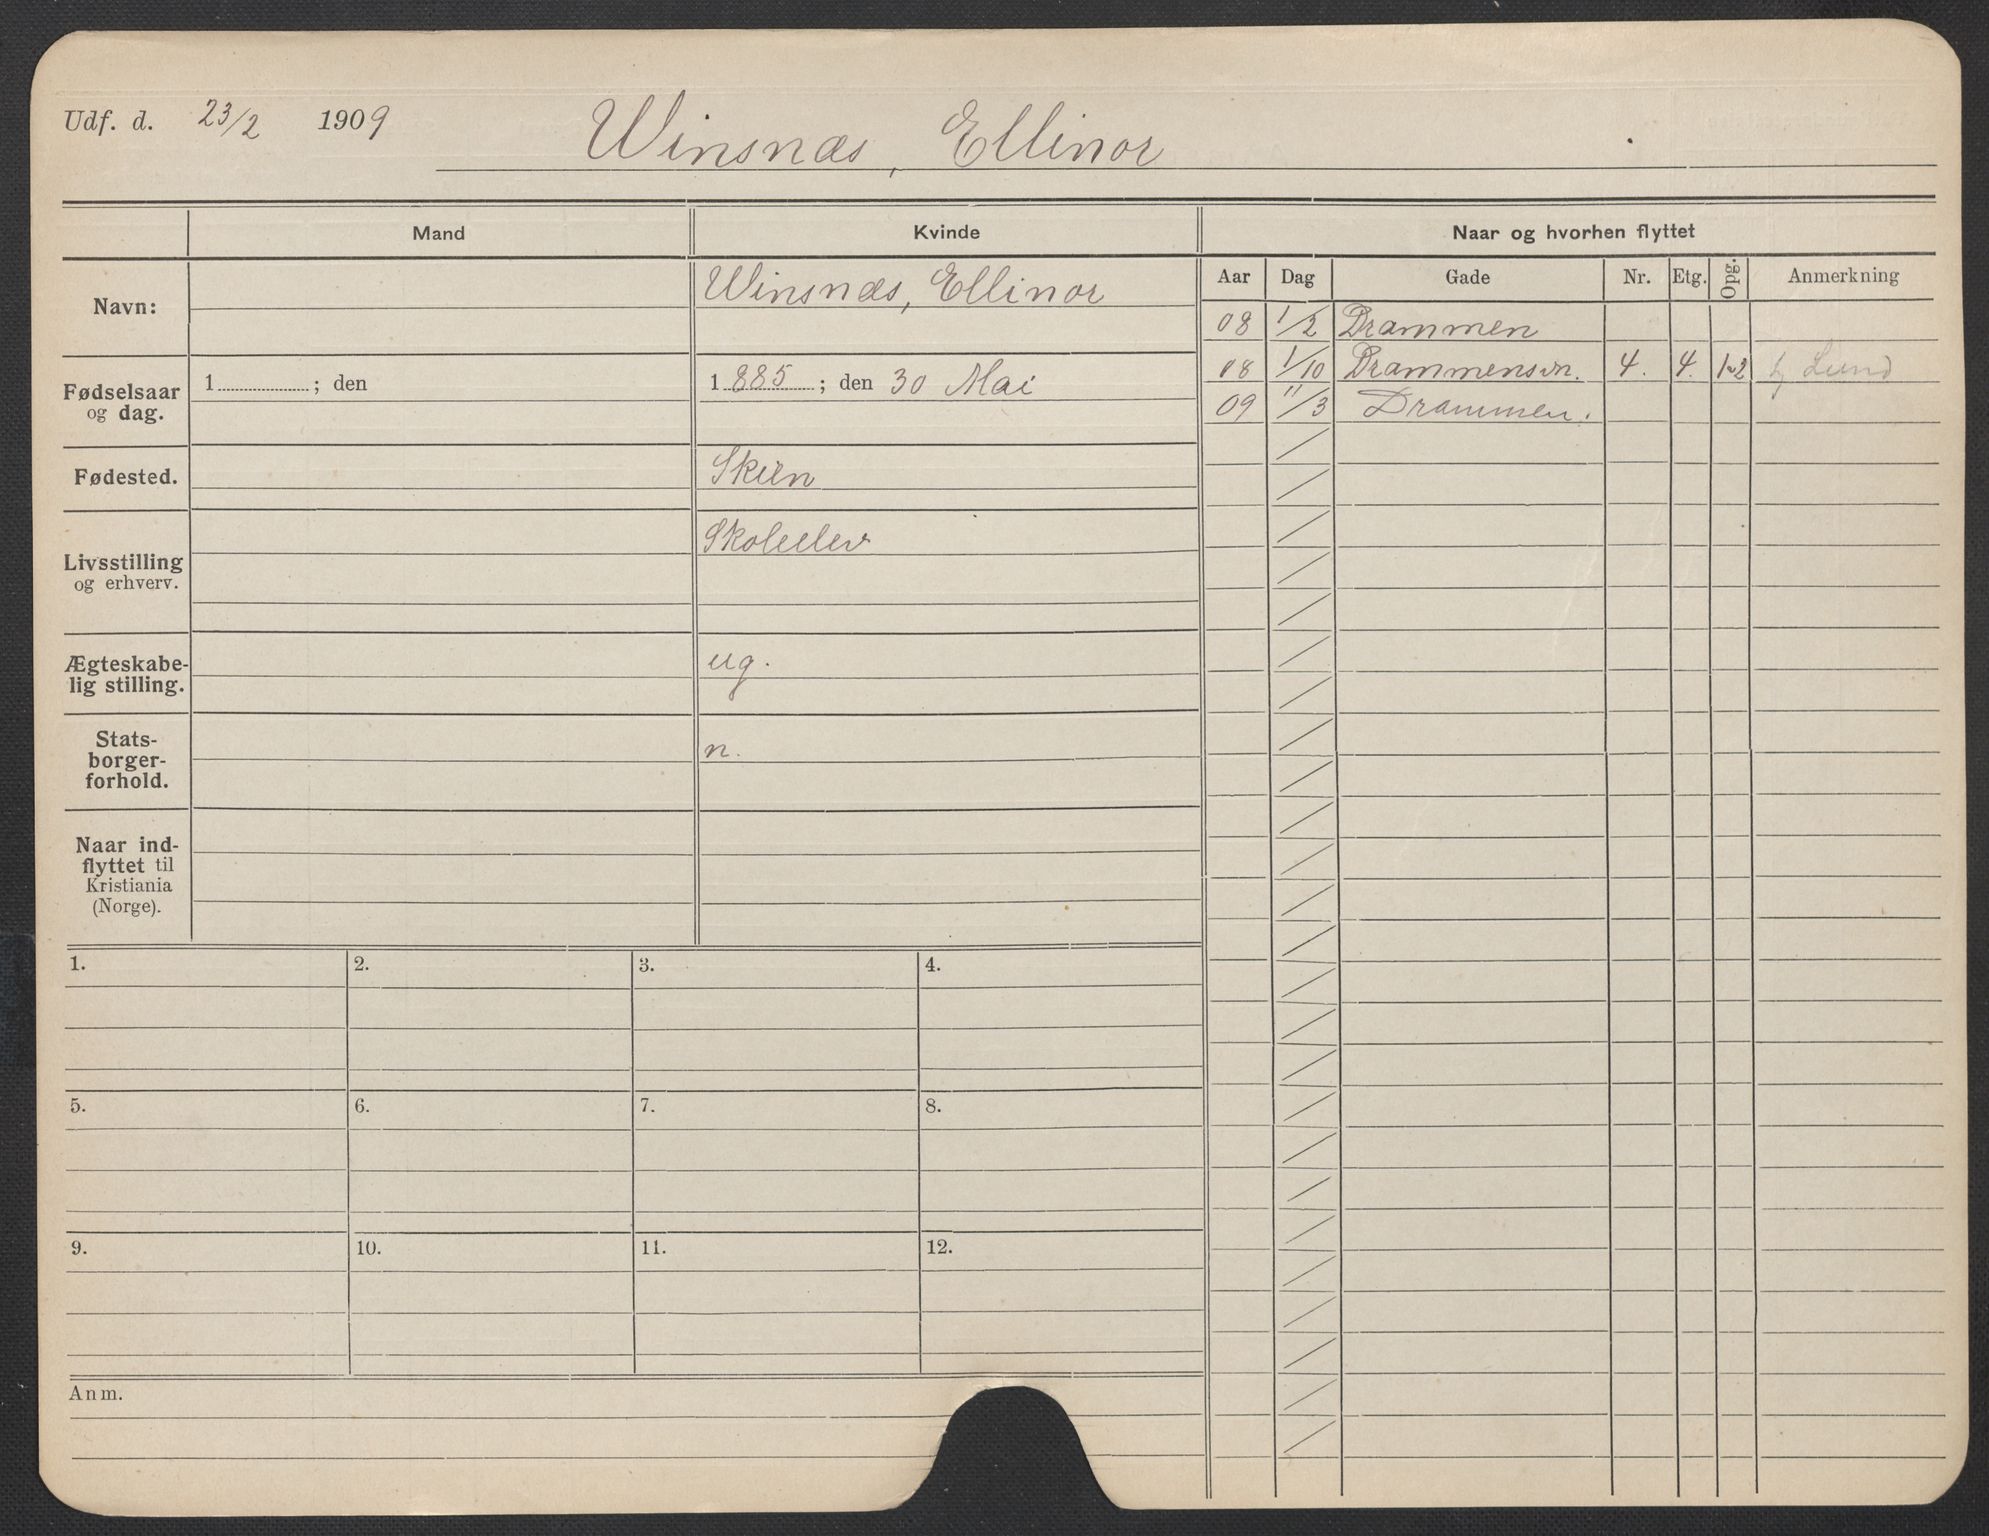 Udf. d. 23/2 1909 Winsnæs, Ellinor
Mand Kvinde Naar og hvorhen flyttet
Aar Dag Gade Nr. Etg. Opg. Anmerkning
Navn: Winsnæs, Ellinor
08 1/2 Drammen
08 1/10 Drammensvn. 4. 4. 1-2 Lund
09 11/3 Drammen.
Fødselsaar
og dag.
1 ; den 1 885 ; den 30 Mai
Fødested. Skien
Livsstilling
og erhverv.
Skoleelev
Ægteskabe-
lig stilling.
ug.
Stats-
borger-
forhold.
n.
Naar ind-
flyttet til
Kristiania
(Norge).
1. 2. 3. 4.
5. 6. 7. 8.
9. 10. 11. 12.
Anm.